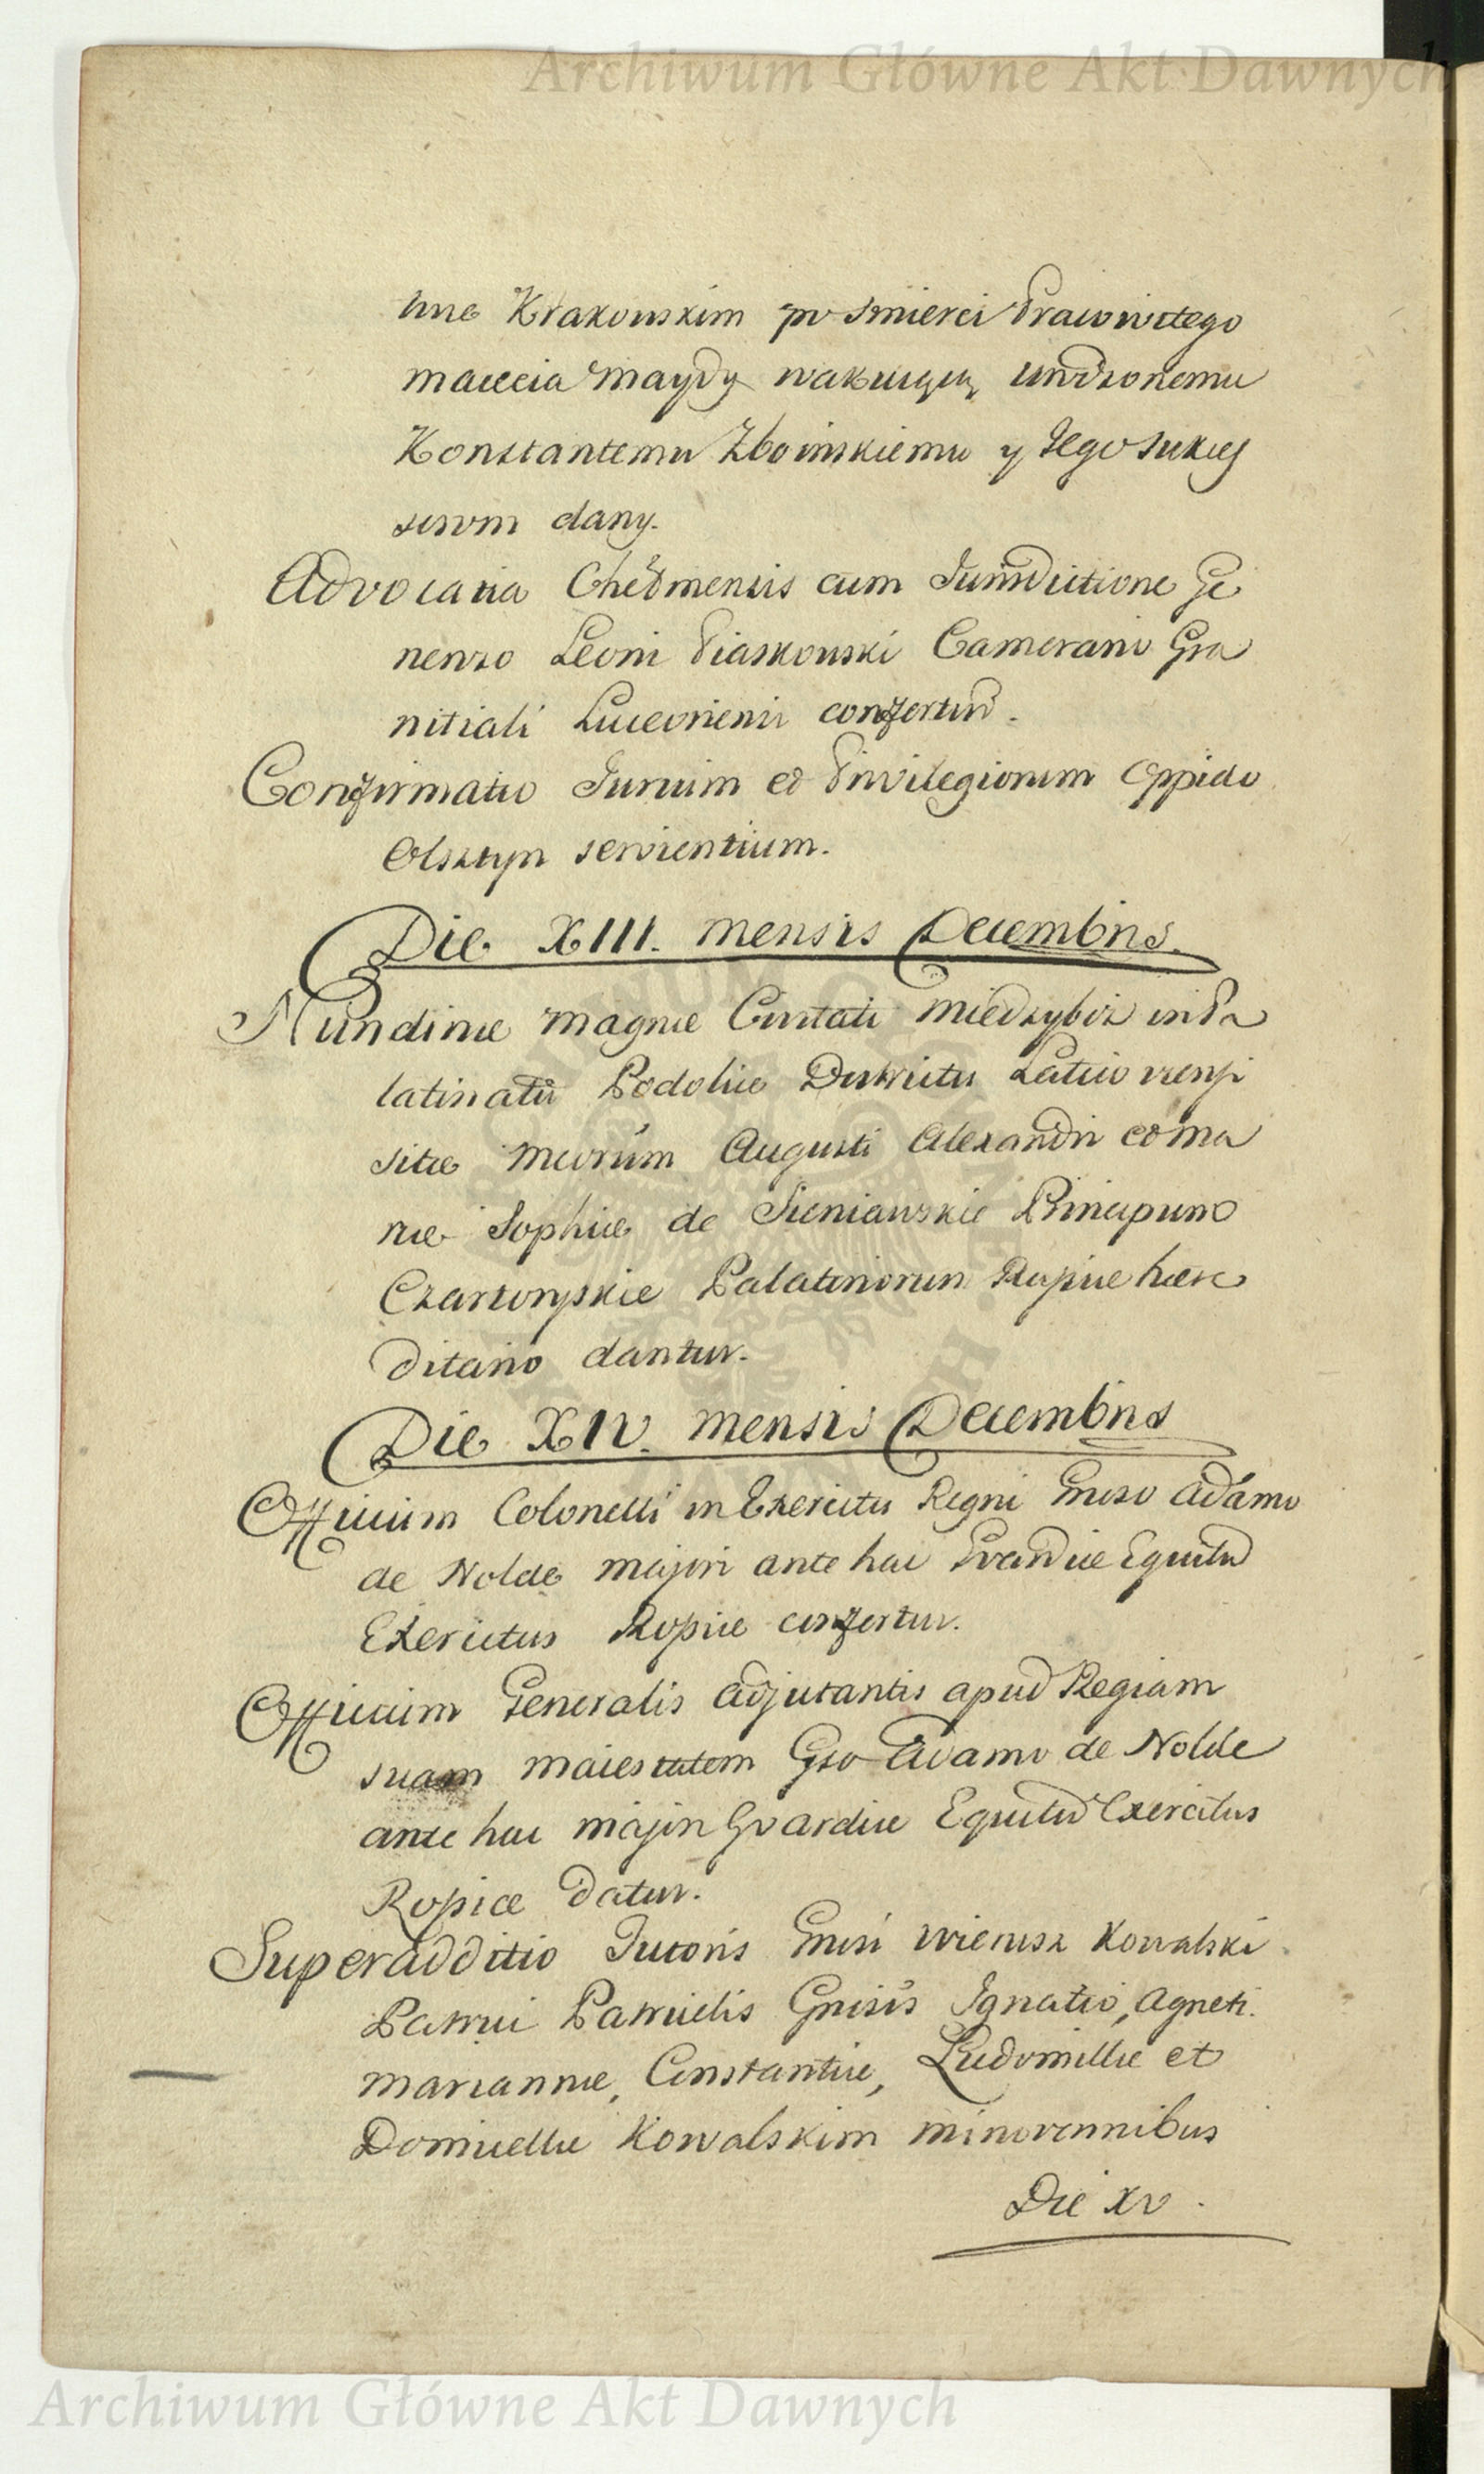 Archiwum Główne Akt Dawnych
Krakowskim po Smierci Prawowitego
Macieia Maydy wakuiący Urodzonemu
Konstantemu Zboinskiemu y Jego Sukces
sorom dany.
Advocatia Chełmensis cum Jurisdictione Ge
neroso Leoni Piaskowski Camerario Gra
nitiali Luceoriensi confertur.
Confirmatio Jurium et Privilegiorum Oppido
Olsztyn servientium.
Die XIII. Mensis Decembris.
Nundinæ Magnæ Civitati Miedzybiz in Pa
latinatu Podoliæ Districtu Laticoviensi
sitæ Mcorum Augusti Alexandri et Ma
riæ Sophiæ de Sieniawskie Principum
Czartoryskie Palatinorum Rusiæ hære
ditario dantur.
Die XIV. Mensis Decembris
Officium Colonelli in Exercitu Regni Gnroso Adamo
de Nolde Majori ante hac Gvardiæ Equitū
Exercitus Ropſicæ confertur.
Officium Generalis Adjutantis apud Regiam
suam Maiestatem Gso Adamo de Nolde
ante hac Majori Gvardiæ Equitū Exercitus
Ropicæ datur.
Superadditio Tutoris Gnrsi Wierusz Kowalski
Patrui Patruelis Gnrsis Ignatio, Agneti.
Mariannæ, Constantiæ, Ludomillæ et
Domicellæ Kowalskim minorennibus
Die XV.
Archiwum Główne Akt Dawnych